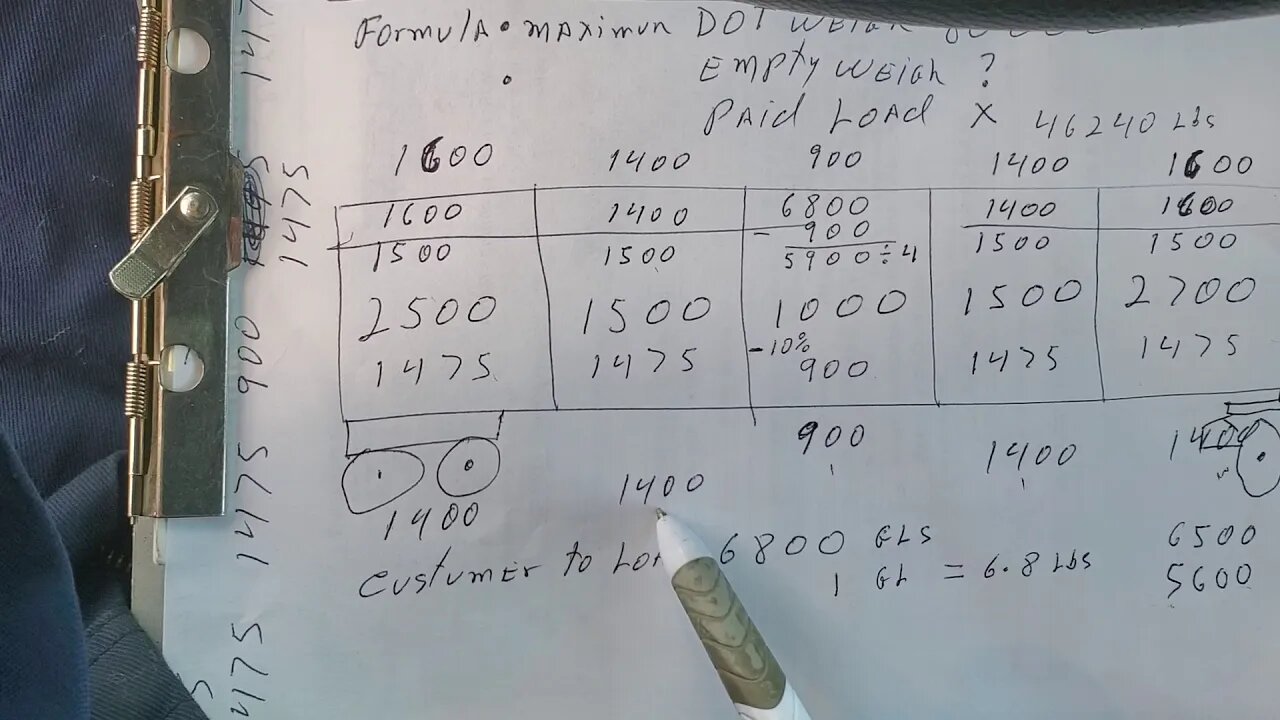 Formula • maximun DOT WEIGH
• Empty WEIGH ?
PAid LOAd X 46240 Lbs
1600 1400 900 1400 1600
1600 1400 6800 1400 1600
- 900
1500 1500 5900÷4 1500 1500
2500 1500 1000 1500 2700
-10%
1475 1475 900 1475 1475
900
1400 1400
1400 1400
custumer to Lo 6800 GLS 6500
1 GL = 6.8 Lbs 5600
1475
1475 1475 900 1475
147